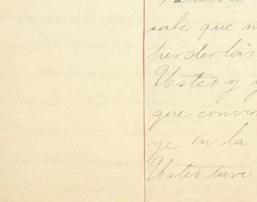 sabe que n
perderlas
Usted y y
que convi
ye en la
Usted tuvi